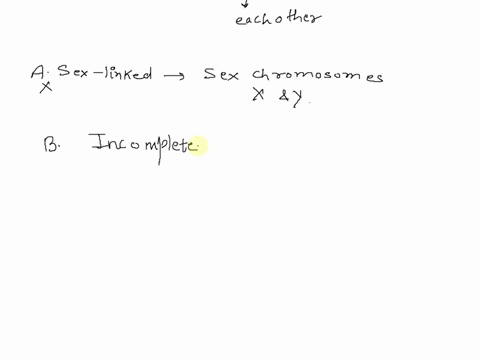 each other
A. Sex-linked → Sex chromosomes
X X & Y.
B. Incomplete